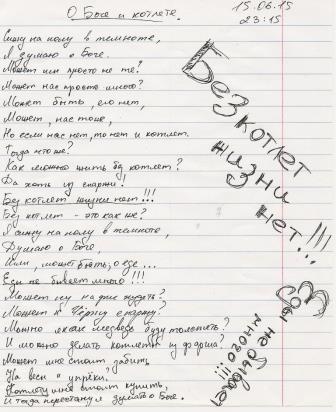 О Боге и котлете.
15.06.15
23:15
Сижу на полу в темноте,
Я думаю о Боге.
Может им просто не те?
Может нас просто много?
Может быть, его нет,
Может, нас тоже,
Но если нас нет, то нет и котлет.
Тогда что же?
Как можно жить без котлет?
Да хоть из спаржи!
Без котлет жизни нет!!!
Без котлет - это как же?
Я сижу на полу в темноте,
Думаю о Боге,
Или, может быть, о еде...
Еды не бывает много!!!
Может ну на уже ждать?
Может к чёрту спаржу?
Можно окан медведь буду толстеть?
И можно делать котлеты из фарша?
Может мне стоит забить,
На весы и упрёки?
Котлету мне стоит купить,
И тогда перестану я думать о Боге.
Без котлет жизни нет!!!
Еды не бывает много!!!